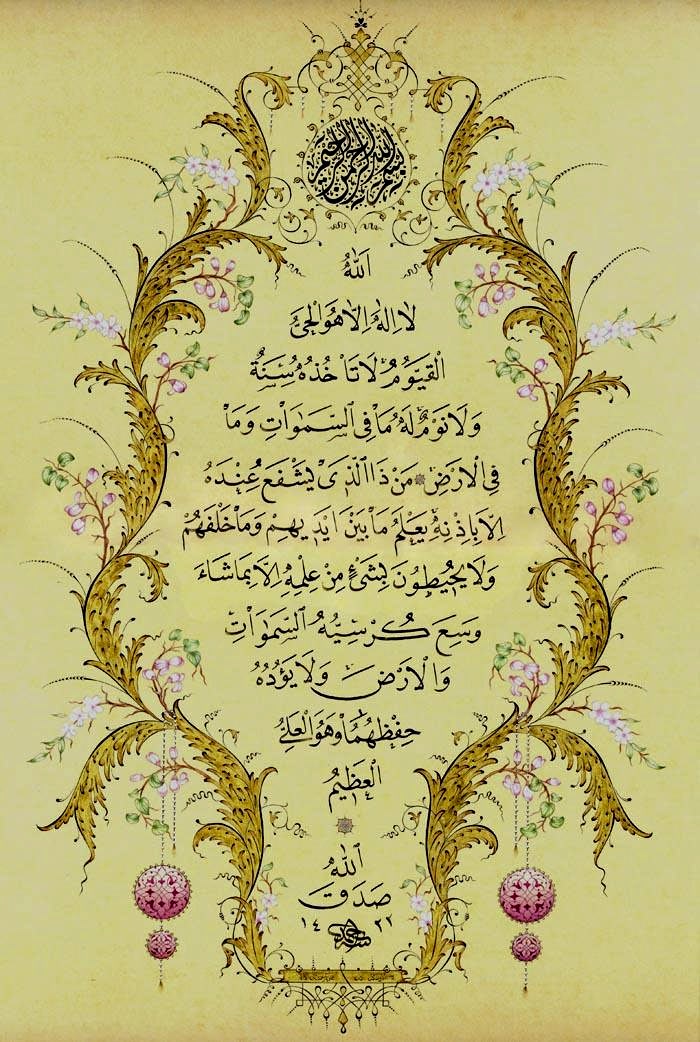 بسم الله الرحمن الرحيم
اَللّٰهُ
لَا اِلٰهَ اِلَّا هُوَ الْحَىُّ
الْقَيُّومُ لَا تَاْخُذُهُ سِنَةٌ
وَلَا نَوْمٌ لَهُ مَا فِى السَّمٰوَاتِ وَمَا
فِى الْاَرْضِ مَنْ ذَا الَّذٖى يَشْفَعُ عِنْدَهُ
اِلَّا بِاِذْنِهٖ يَعْلَمُ مَا بَيْنَ اَيْدٖيهِمْ وَمَا خَلْفَهُمْ
وَلَا يُحٖيطُونَ بِشَىْءٍ مِنْ عِلْمِهٖ اِلَّا بِمَا شَاءَ
وَسِعَ كُرْسِيُّهُ السَّمٰوَاتِ
وَالْاَرْضَ وَلَا يَؤُدُهُ
حِفْظُهُمَا وَهُوَ الْعَلِىُّ
الْعَظٖيمُ
اللّٰهُ
صَدَقَ
١٤٢٢